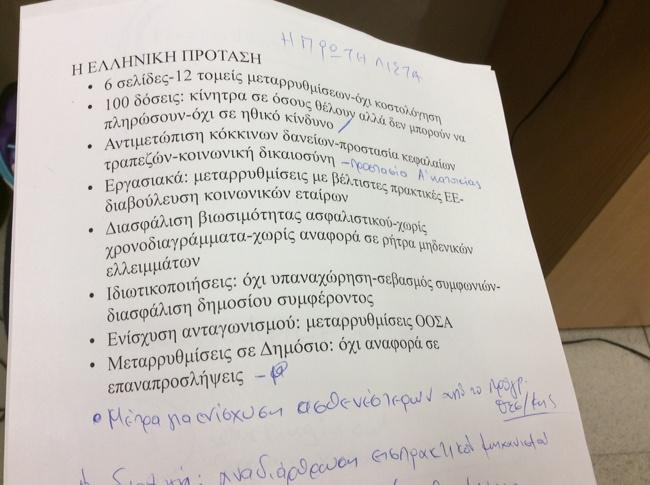 Η ΠΡΩΤΗ ΛΙΣΤΑ
Η ΕΛΛΗΝΙΚΗ ΠΡΟΤΑΣΗ
• 6 σελίδες-12 τομείς μεταρρυθμίσεων-όχι κοστολόγηση
• 100 δόσεις: κίνητρα σε όσους θέλουν αλλά δεν μπορούν να
πληρώσουν-όχι σε ηθικό κίνδυνο
• Αντιμετώπιση κόκκινων δανείων-προστασία κεφαλαίων
τραπεζών-κοινωνική δικαιοσύνη – προστασία Α' κατοικίας
• Εργασιακά: μεταρρυθμίσεις με βέλτιστες πρακτικές ΕΕ-
διαβούλευση κοινωνικών εταίρων
• Διασφάλιση βιωσιμότητας ασφαλιστικού-χωρίς
χρονοδιαγράμματα-χωρίς αναφορά σε ρήτρα μηδενικών
ελλειμμάτων
• Ιδιωτικοποιήσεις: όχι υπαναχώρηση-σεβασμός συμφωνιών-
διασφάλιση δημοσίου συμφέροντος
• Ενίσχυση ανταγωνισμού: μεταρρυθμίσεις ΟΟΣΑ
• Μεταρρυθμίσεις σε Δημόσιο: όχι αναφορά σε
επαναπροσλήψεις –
• Μέτρα για ενίσχυση ασθενέστερων από το πρόγρ.
Θεσ/κης
αναδιάρθρωση εισπρακτικού μηχανισμού